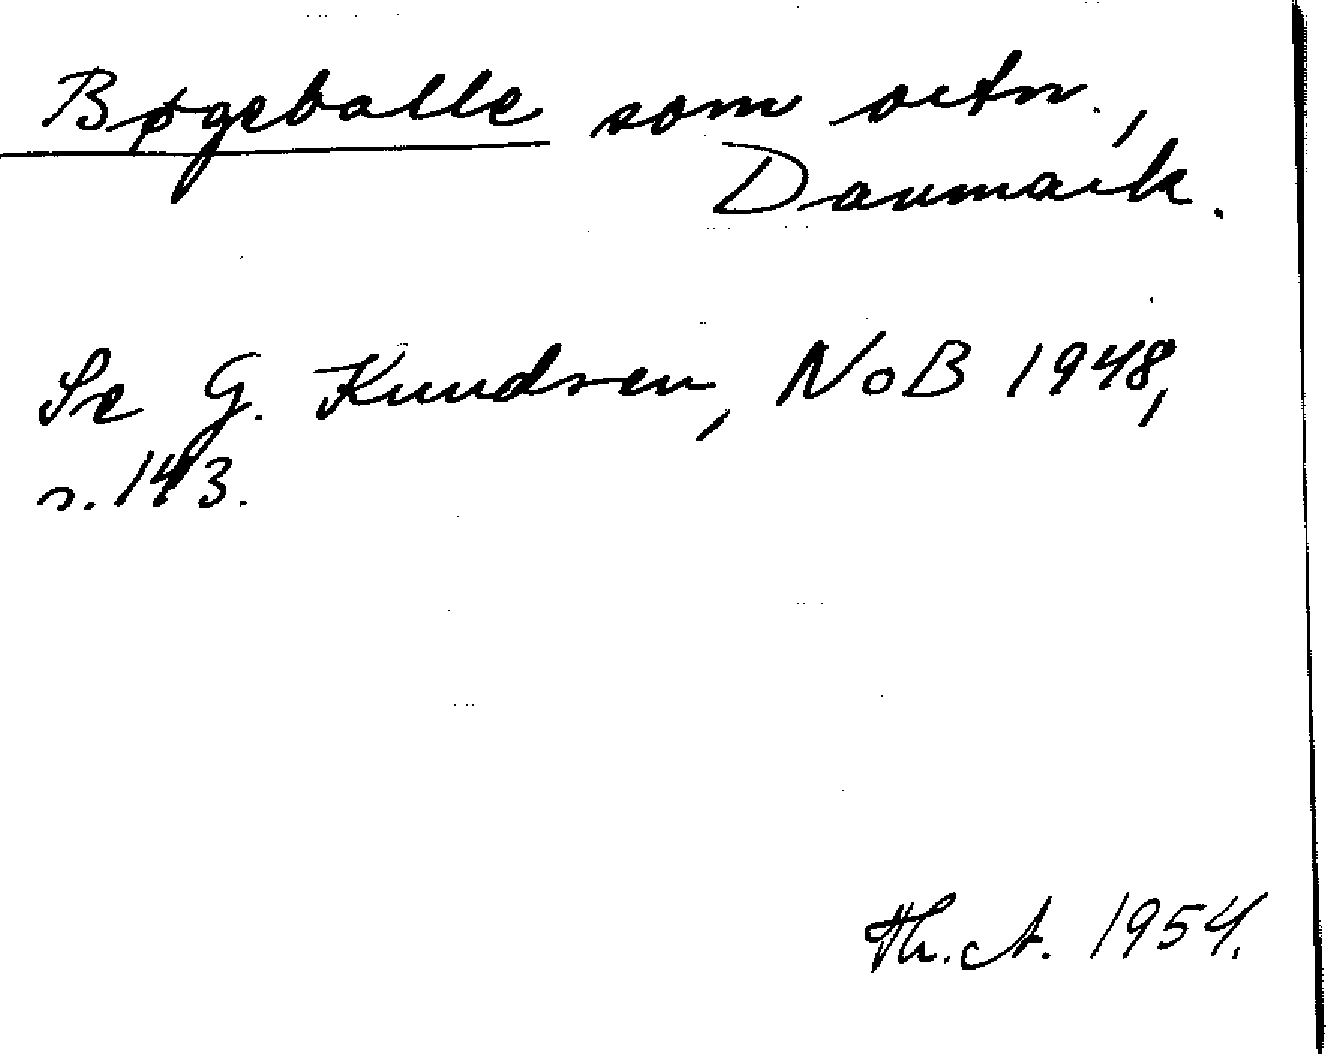 Bøgeballe som ortn.,
Danmark.
Se G. Knudsen, NoB 1948,
s. 143.
Th. A. 1954.